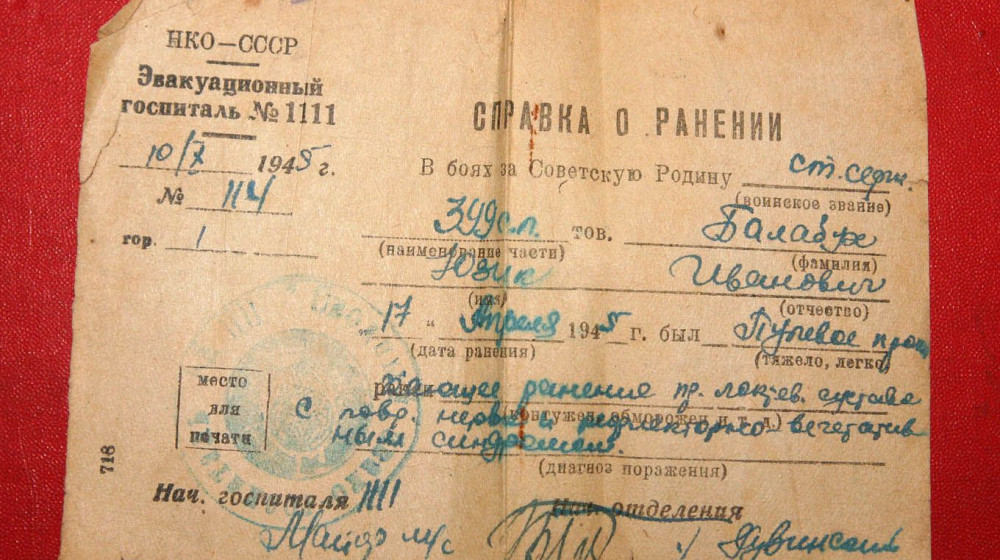 НКО—СССР
Эвакуационный
госпиталь № 1111
10/X 1945 г.
№ 114
гор. 1
СПРАВКА О РАНЕНИИ
В боях за Советскую Родину ст. серж.
(воинское звание)
399 с.п. тов. Балабух
(наименование части) (фамилия)
Юзик Иванович
(имя) (отчество)
"17" Апреля 1945 г. был Пулевое
(дата ранения) (тяжело, легко)
ранение пр. локтев. сустава
(контужен, обморожен и т. д.)
с повр. нервов и рефлекторно-вегетатив
ным синдромом.
(диагноз поражения)
место
для
печати
718
Нач. госпиталя 1111
Нач. отделения
Майор м/с